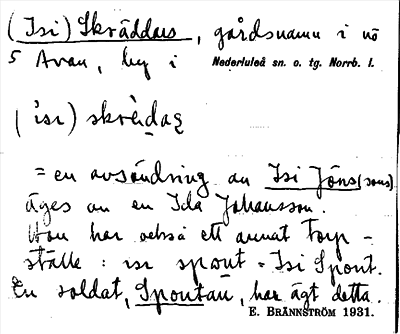 (Isi) Skräddars, gårdsnamn i nö
5 Avan, by i Nederluleå sn. o. tg. Norrb. l.
(isr) skrèdaṣ
= en avsöndring av Isi Jöns(sons)
äges av en Ida Johansson.
Hon har också ett annat torp-
ställe: isr spont = Isi Spont.
En soldat, Spontan, har ägt detta.
E. BRÄNNSTRÖM 1931.